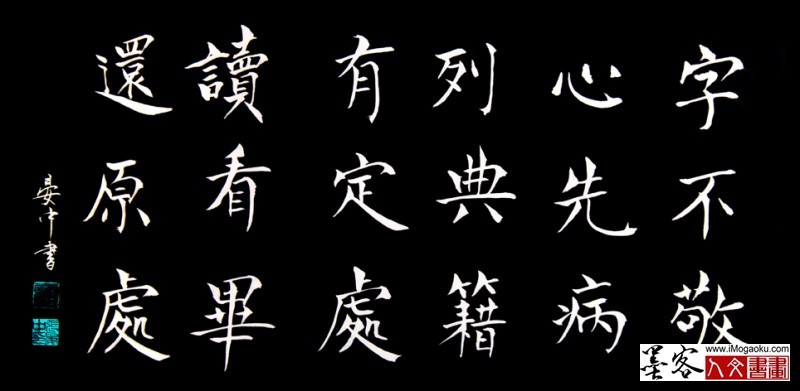 字不敬
心先病
列典籍
有定處
讀看畢
還原處
晏中書
www.iMogaoku.com
墨客
人文書畫